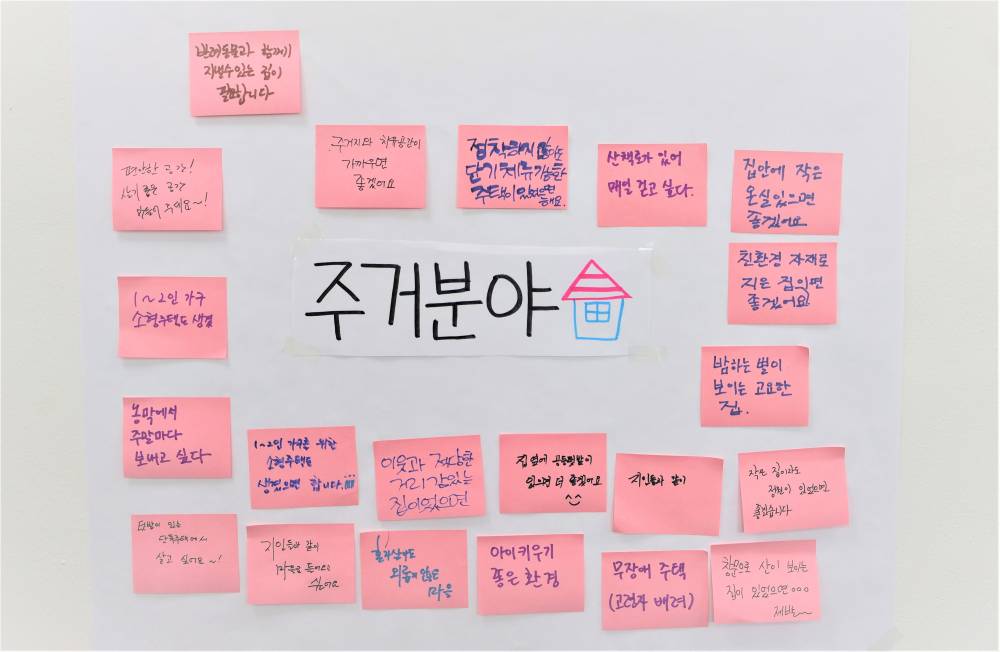 반려동물과 함께
지낼수있는 집이
필요합니다
편안한 공간!
살기 좋은 공간
만들어 주세요~!
주거지와 치유공간이
가까우면
좋겠어요
정착하지 않아도
단기체류가능한
주택이 있었으면
해요.
산책로가 있어
매일 걷고 싶다.
집안에 작은
온실있으면
좋겠어요
주거분야
친환경 자재로
지은 집이면
좋겠어요
1~2인 가구
소형주택도 생겼
밤하는 별이
보이는 고요한
집.
농막에서
주말마다
보내고 싶다
1~2인 가구를 위한
소형주택도
생겼으면 합니다.
이웃과 적당한
거리감있는
집이었으면
집 옆에 공동텃밭이
있으면 더 좋겠어요
지인들과 같이
작은 집이라도
정원이 있었으면
좋겠습니다
텃밭이 있는
단독주택에서
살고 싶어요~!
지인들과 같이
마을을 만들고
싶어요
혼자살아도
외롭지 않은
마을
아이키우기
좋은 환경
무장애 주택
(고령자 배려)
창문으로 산이 보이는
집이 있었으면...
제발~